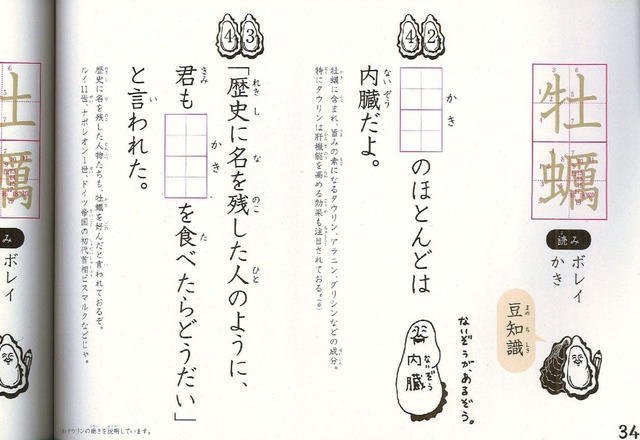 牡蠣
読み
ボレイ
かき
まめちしき
豆知識
42
かき
のほとんどは
ないぞう
内臓だよ。
ないぞうがあるぞう。
ないぞう
内臓
牡蠣に含まれ、旨みの素になるタウリン、アラニン、グリシンなどの成分。
特にタウリンは肝機能を高める効果も注目されておる。
43
れきし な のこ ひと
「歴史に名を残した人のように、
きみ かき た
君も を食べたらどうだい」
い
と言われた。
歴史に名を残した人物たちも、牡蠣を好んだと言われておるぞ。
ルイ11世、ナポレオン1世、ドイツ帝国の初代首相ビスマルクなどじゃ。
タウリンの働きを説明しています。
34
土
蠣
み